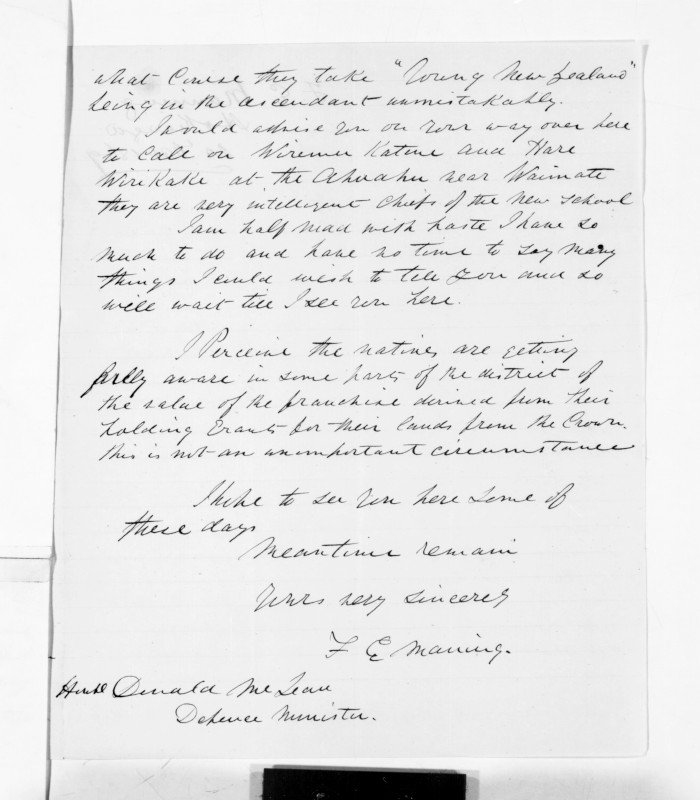 what Course they take "Young New Zealand"
being in the ascendant unmistakably.
I would advise you on your way over here
to call on Wiremu Katene and Hare
Wirikake at the Ahuahu near Waimate
they are very intelligent Chiefs of the new school
I am half mad with haste I have so
much to do and have no time to say many
things I could wish to tell you and so
will wait till I see you here.
I Perceive the natives are getting
fully aware in some parts of the district of
the value of the franchise derived from their
holding Grants for their lands from the Crown.
this is not an unimportant circumstance
I hope to see you here some of
these days
Meantime remain
Yours very sincerely
F E Maning.
Honble Donald McLean
Defence Minister.